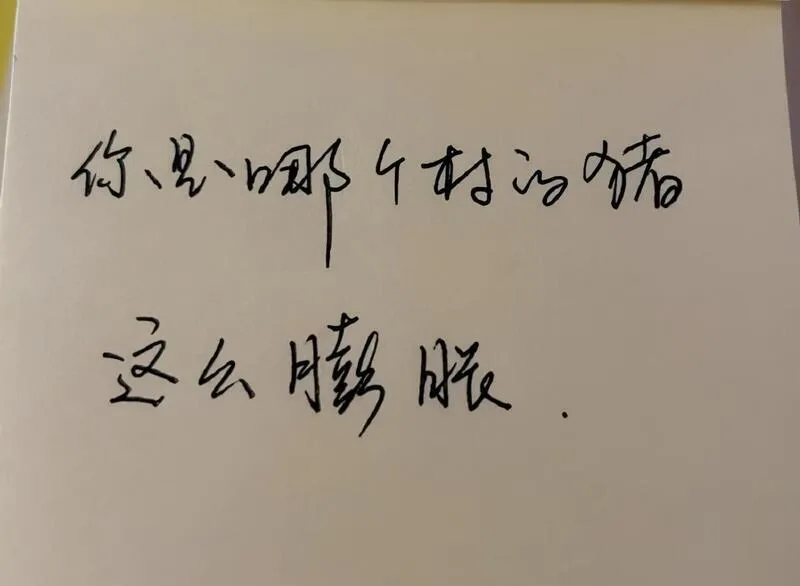 你是哪个村的猪
这么膨胀.